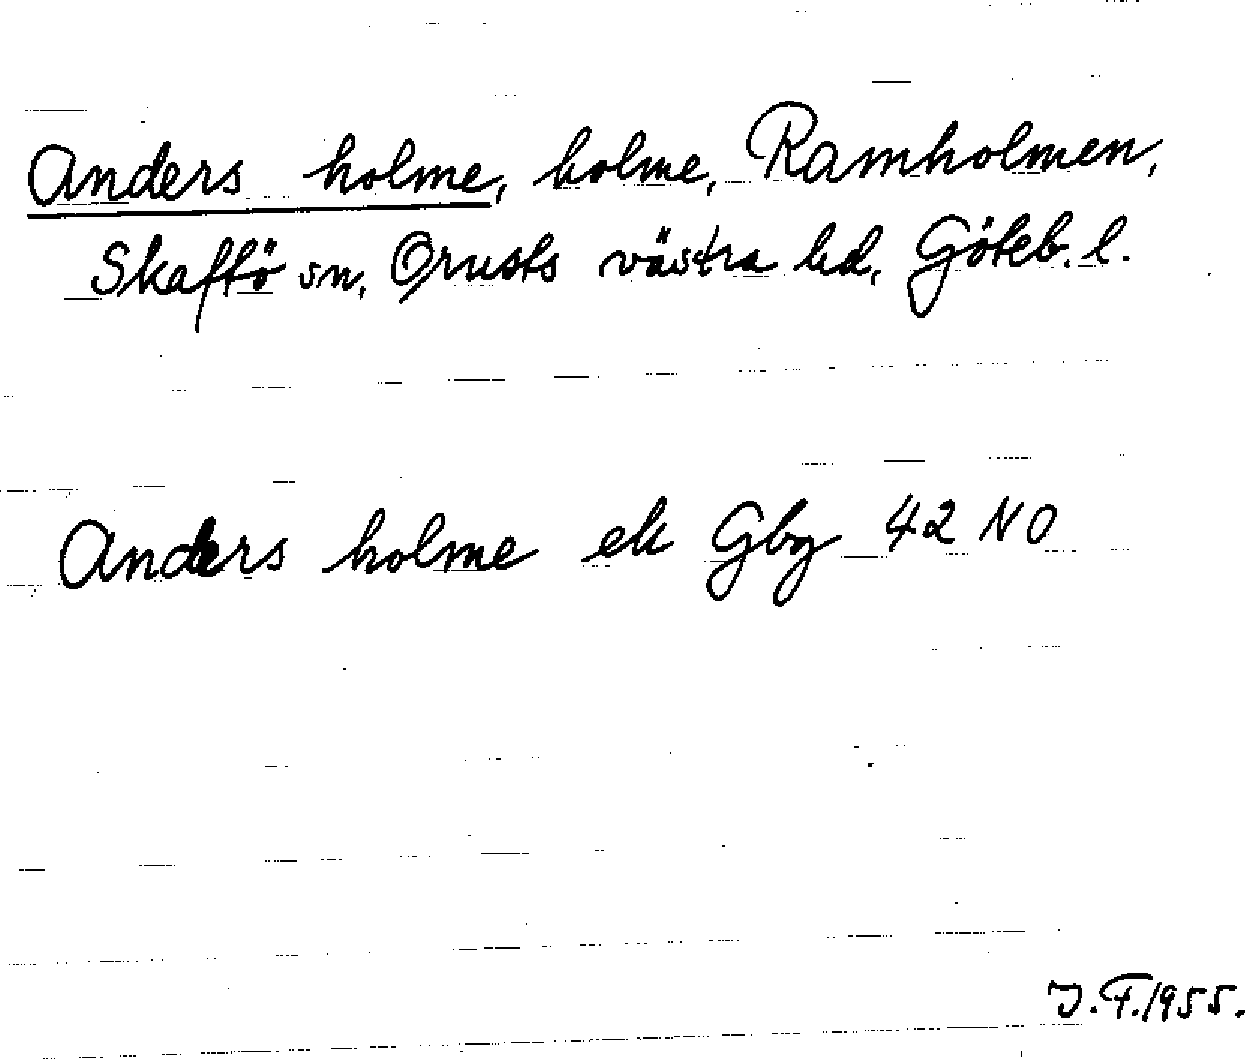 Anders holme, holme, Ramholmen,
Skaftö sn, Orusts västra hd, Göteb. l.
Anders holme ek Gbg 42 NO
I.F. 1955.